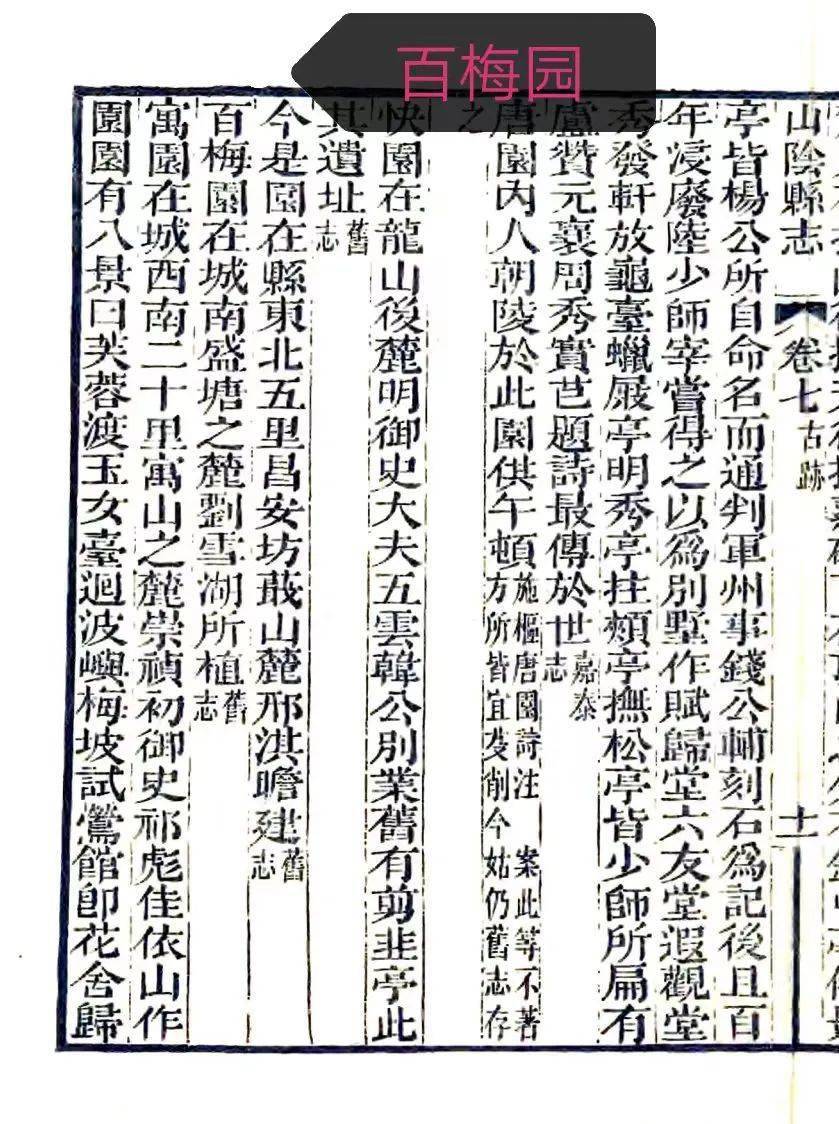 百梅园
山陰縣志 卷七 古跡 十一
亭皆楊公所自命名而通判軍州事錢公輔刻石爲記後且百
年浸廢陸少師宰嘗得之以爲別墅作賦歸堂六友堂遐觀堂
秀發軒放龜臺蠟屐亭明秀亭拄頰亭撫松亭皆少師所扁有
盧贊元襄周秀實芑題詩最傳於世嘉泰志
唐園內人朝陵於此園供午頓施樞唐園詩注 案此等不著方所皆宜芟削今姑仍舊志存
之
快園在龍山後麓明御史大夫五雲韓公別業舊有剪韭亭此
其遺址舊志
今是園在縣東北五里昌安坊蕺山麓邢淇瞻建舊志
百梅園在城南盛塘之麓劉雪湖所植舊志
寓園在城西南二十里寓山之麓崇禎初御史祁彪佳依山作
園園有八景曰芙蓉渡玉女臺迴波嶼梅坡試鶯館卽花舍歸